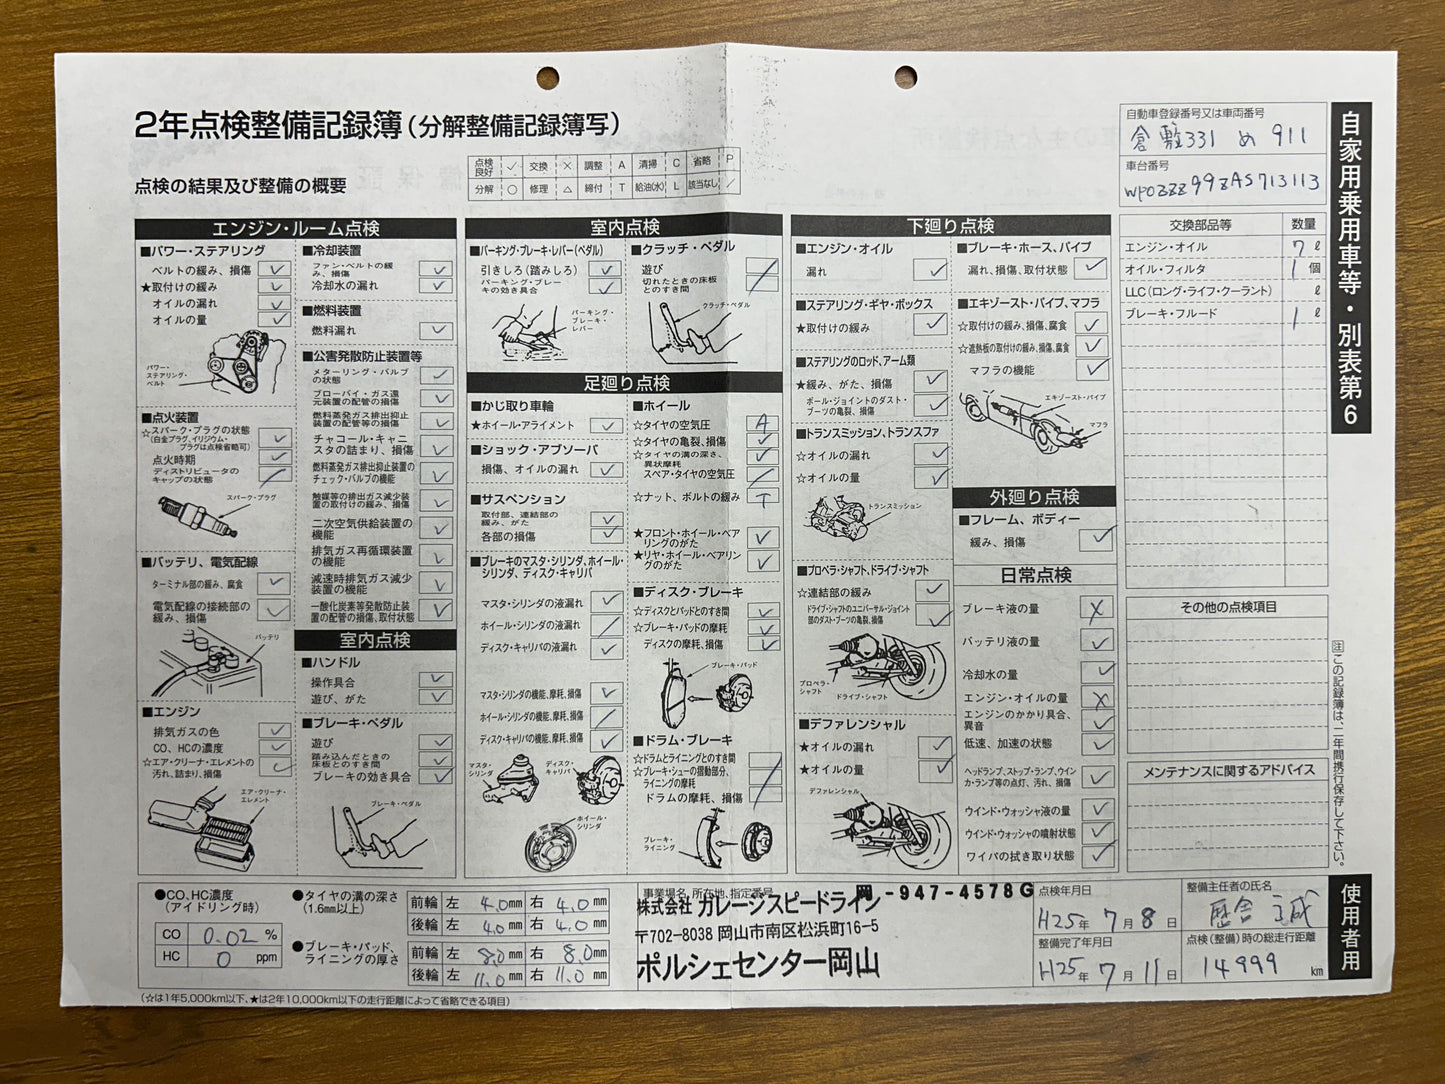 2年点検整備記録簿(分解整備記録簿写)
点検の結果及び整備の概要
点検良好 ✓ 交換 × 調整 A 清掃 C 省略 P
分解 ○ 修理 △ 締付 T 給油(水) L 該当なし ／
自動車登録番号又は車両番号
倉敷331 め 911
車台番号
WP0ZZZ99ZAS713113
自家用乗用車等・別表第6
エンジン・ルーム点検
■パワー・ステアリング
ベルトの緩み、損傷 ✓
★取付けの緩み ✓
オイルの漏れ ✓
オイルの量 ✓
パワー・
ステアリング・
ベルト
■点火装置
☆スパーク・プラグの状態 ✓
(白金プラグ、イリジウム・
プラグは点検省略可)
点火時期 ✓
ディストリビュータの
キャップの状態 ／
スパーク・プラグ
■バッテリ、電気配線
ターミナル部の緩み、腐食 ✓
電気配線の接続部の
緩み、損傷 ✓
バッテリ
■エンジン
排気ガスの色 ✓
CO、HCの濃度 ✓
☆エア・クリーナ・エレメントの
汚れ、詰まり、損傷 ✓
エア・クリーナ・
エレメント
■冷却装置
ファン・ベルトの緩
み、損傷 ✓
冷却水の漏れ ✓
■燃料装置
燃料漏れ ✓
■公害発散防止装置等
メターリング・バルブ
の状態 ✓
ブローバイ・ガス還
元装置の配管の損傷 ✓
燃料蒸発ガス排出抑止
装置の配管等の損傷 ✓
チャコール・キャニ
スタの詰まり、損傷 ✓
燃料蒸発ガス排出抑止装置の
チェック・バルブの機能 ✓
触媒等の排出ガス減少装
置の取付けの緩み、損傷 ✓
二次空気供給装置の
機能 ✓
排気ガス再循環装置
の機能 ✓
減速時排気ガス減少
装置の機能 ✓
一酸化炭素等発散防止装
置の配管の損傷、取付状態 ✓
室内点検
■ハンドル
操作具合 ✓
遊び、がた ✓
■ブレーキ・ペダル
遊び ✓
踏み込んだときの
床板とのすき間 ✓
ブレーキの効き具合 ✓
ブレーキ・ペダル
室内点検
■パーキング・ブレーキ・レバー(ペダル)
引きしろ(踏みしろ) ✓
パーキング・ブレー
キの効き具合 ✓
パーキング・
ブレーキ・
レバー
■クラッチ・ペダル
遊び ／
切れたときの床板
とのすき間
クラッチ・ペダル
足廻り点検
■かじ取り車輪
★ホイール・アライメント ✓
■ショック・アブソーバ
損傷、オイルの漏れ ✓
■サスペンション
取付部、連結部の
緩み、がた ✓
各部の損傷 ✓
■ブレーキのマスタ・シリンダ、ホイール・
シリンダ、ディスク・キャリパ
マスタ・シリンダの液漏れ ✓
ホイール・シリンダの液漏れ ／
ディスク・キャリパの液漏れ ✓
マスタ・シリンダの機能、摩耗、損傷 ✓
ホイール・シリンダの機能、摩耗、損傷 ／
ディスク・キャリパの機能、摩耗、損傷 ✓
マスタ・
シリンダ
ディスク・
キャリパ
ホイール・
シリンダ
■ホイール
☆タイヤの空気圧 A
☆タイヤの亀裂、損傷 ✓
☆タイヤの溝の深さ、
異状摩耗 ✓
スペア・タイヤの空気圧 ／
☆ナット、ボルトの緩み T
★フロント・ホイール・ベア
リングのがた ✓
★リヤ・ホイール・ベアリン
グのがた ✓
■ディスク・ブレーキ
☆ディスクとパッドとのすき間 ✓
☆ブレーキ・パッドの摩耗 ✓
ディスクの摩耗、損傷 ✓
ブレーキ・パッド
■ドラム・ブレーキ
☆ドラムとライニングとのすき間
☆ブレーキ・シューの摺動部分、
ライニングの摩耗 ／
ドラムの摩耗、損傷
ブレーキ・
ライニング
下廻り点検
■エンジン・オイル
漏れ ✓
■ステアリング・ギヤ・ボックス
★取付けの緩み ✓
■ステアリングのロッド、アーム類
★緩み、がた、損傷 ✓
ボール・ジョイントのダスト・
ブーツの亀裂、損傷 ✓
■トランスミッション、トランスファ
☆オイルの漏れ ✓
☆オイルの量 ✓
トランスミッション
■プロペラ・シャフト、ドライブ・シャフト
☆連結部の緩み ✓
ドライブ・シャフトのユニバーサル・ジョイント
部のダスト・ブーツの亀裂、損傷 ✓
プロペラ・
シャフト
ドライブ・シャフト
■デファレンシャル
★オイルの漏れ ✓
★オイルの量 ✓
デファレンシャル
■ブレーキ・ホース、パイプ
漏れ、損傷、取付状態 ✓
■エキゾースト・パイプ、マフラ
☆取付けの緩み、損傷、腐食 ✓
☆遮熱板の取付けの緩み、損傷、腐食 ✓
マフラの機能 ✓
エキゾースト・パイプ
マフラ
外廻り点検
■フレーム、ボディー
緩み、損傷 ✓
日常点検
ブレーキ液の量 ×
バッテリ液の量 ✓
冷却水の量 ✓
エンジン・オイルの量 ×
エンジンのかかり具合、
異音 ✓
低速、加速の状態 ✓
ヘッドランプ、ストップ・ランプ、ウイン
カ・ランプ等の点灯、汚れ、損傷 ✓
ウインド・ウォッシャ液の量 ✓
ウインド・ウォッシャの噴射状態 ✓
ワイパの拭き取り状態 ✓
交換部品等 数量
エンジン・オイル 7 ℓ
オイル・フィルタ 1 個
LLC(ロング・ライフ・クーラント) ℓ
ブレーキ・フルード 1 ℓ
その他の点検項目
メンテナンスに関するアドバイス
注 この記録簿は、二年間携行保存して下さい。
使用者用
●CO、HC濃度
(アイドリング時)
CO 0.02 %
HC 0 ppm
●タイヤの溝の深さ
(1.6mm以上)
前輪 左 4.0mm 右 4.0mm
後輪 左 4.0mm 右 4.0mm
●ブレーキ・パッド、
ライニングの厚さ
前輪 左 8.0mm 右 8.0mm
後輪 左 11.0mm 右 11.0mm
(☆は1年5,000km以下、★は2年10,000km以下の走行距離によって省略できる項目)
事業場名、所在地、指定番号
岡 -947-4578G
株式会社 ガレージスピードライン
〒702-8038 岡山市南区松浜町16-5
ポルシェセンター岡山
点検年月日
H25年 7月 8日
整備完了年月日
H25年 7月 11日
整備主任者の氏名
点検(整備)時の総走行距離
14999 km